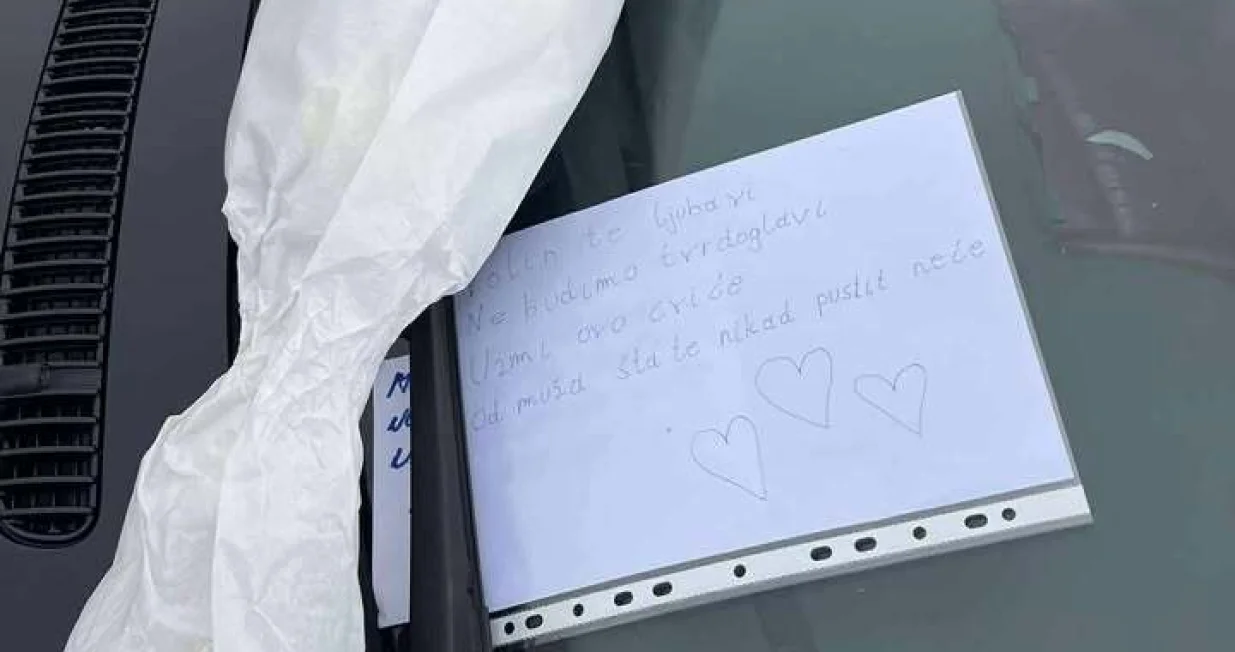 Volim te ljubavi
Ne budimo tvrdoglavi
Uzmi ovo cviće
Od muža šta te nikad pustit neće